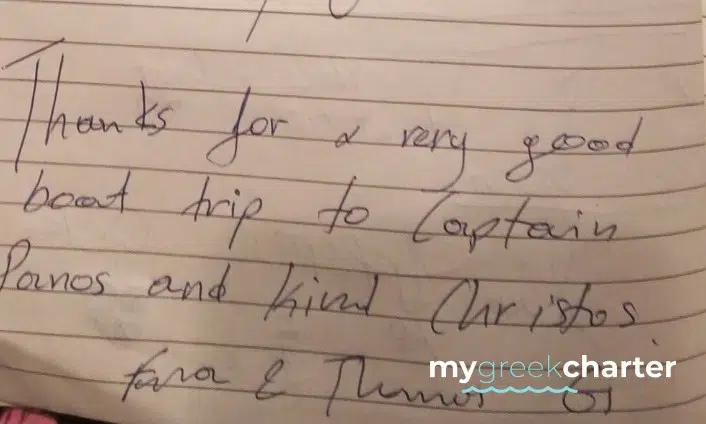 Thanks for a very good
boat trip to Captain
Panos and kind Christos.
&
mygreekcharter